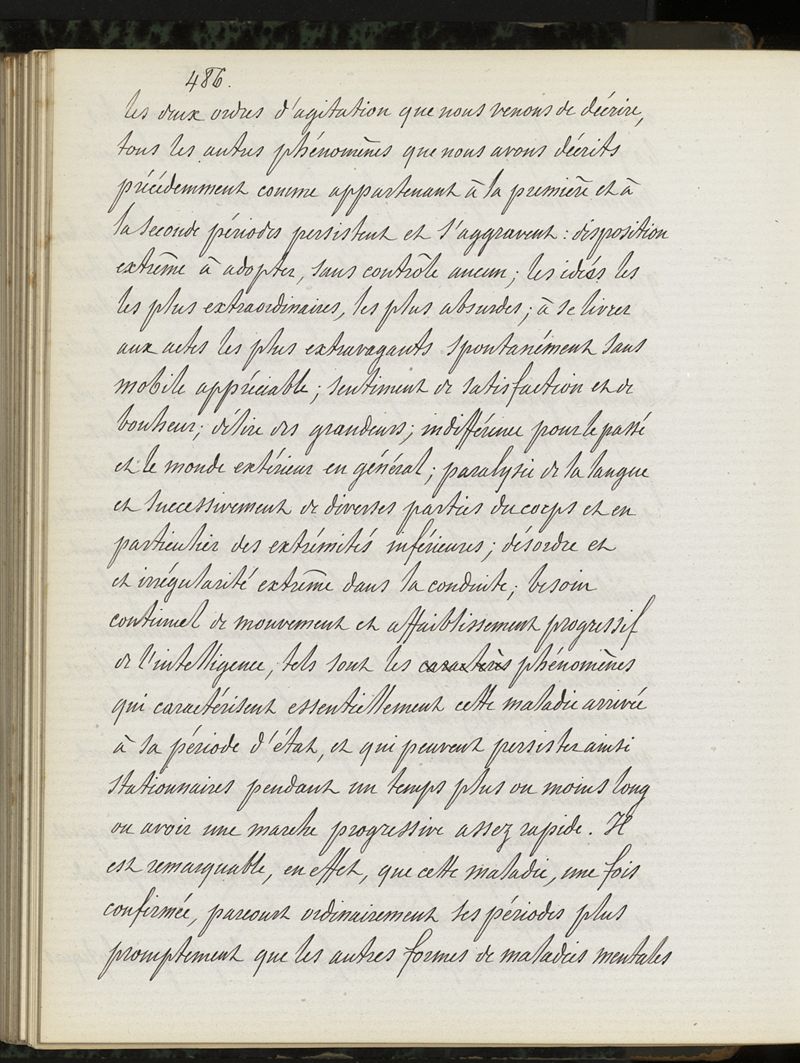 486.
les deux ordres d'agitation que nous venons de décrire,
tous les autres phénomènes que nous avons décrits
précédemment comme appartenant à la première et à
la seconde périodes persistent et s'aggravent : disposition
extrême à adopter, sans contrôle aucun ; les idées les
les plus extraordinaires, les plus absurdes ; à se livrer
aux actes les plus extravagants spontanément sans
mobile appréciable ; sentiment de satisfaction et de
bonheur ; délire des grandeurs ; indifférence pour le passé
et le monde extérieur en général ; paralysie de la langue
et successivement de diverses parties du corps et en
particulier des extrémités inférieures ; désordre et
et irrégularité extrême dans la conduite ; besoin
continuel de mouvement et affaiblissement progressif
de l'intelligence, tels sont les caractères phénomènes
qui caractérisent essentiellement cette maladie arrivée
à sa période d'état, et qui peuvent persister ainsi
stationnaires pendant un temps plus ou moins long
ou avoir une marche progressive assez rapide. Il
est remarquable, en effet, que cette maladie, une fois
confirmée, parcourt ordinairement ses périodes plus
promptement que les autres formes de maladies mentales